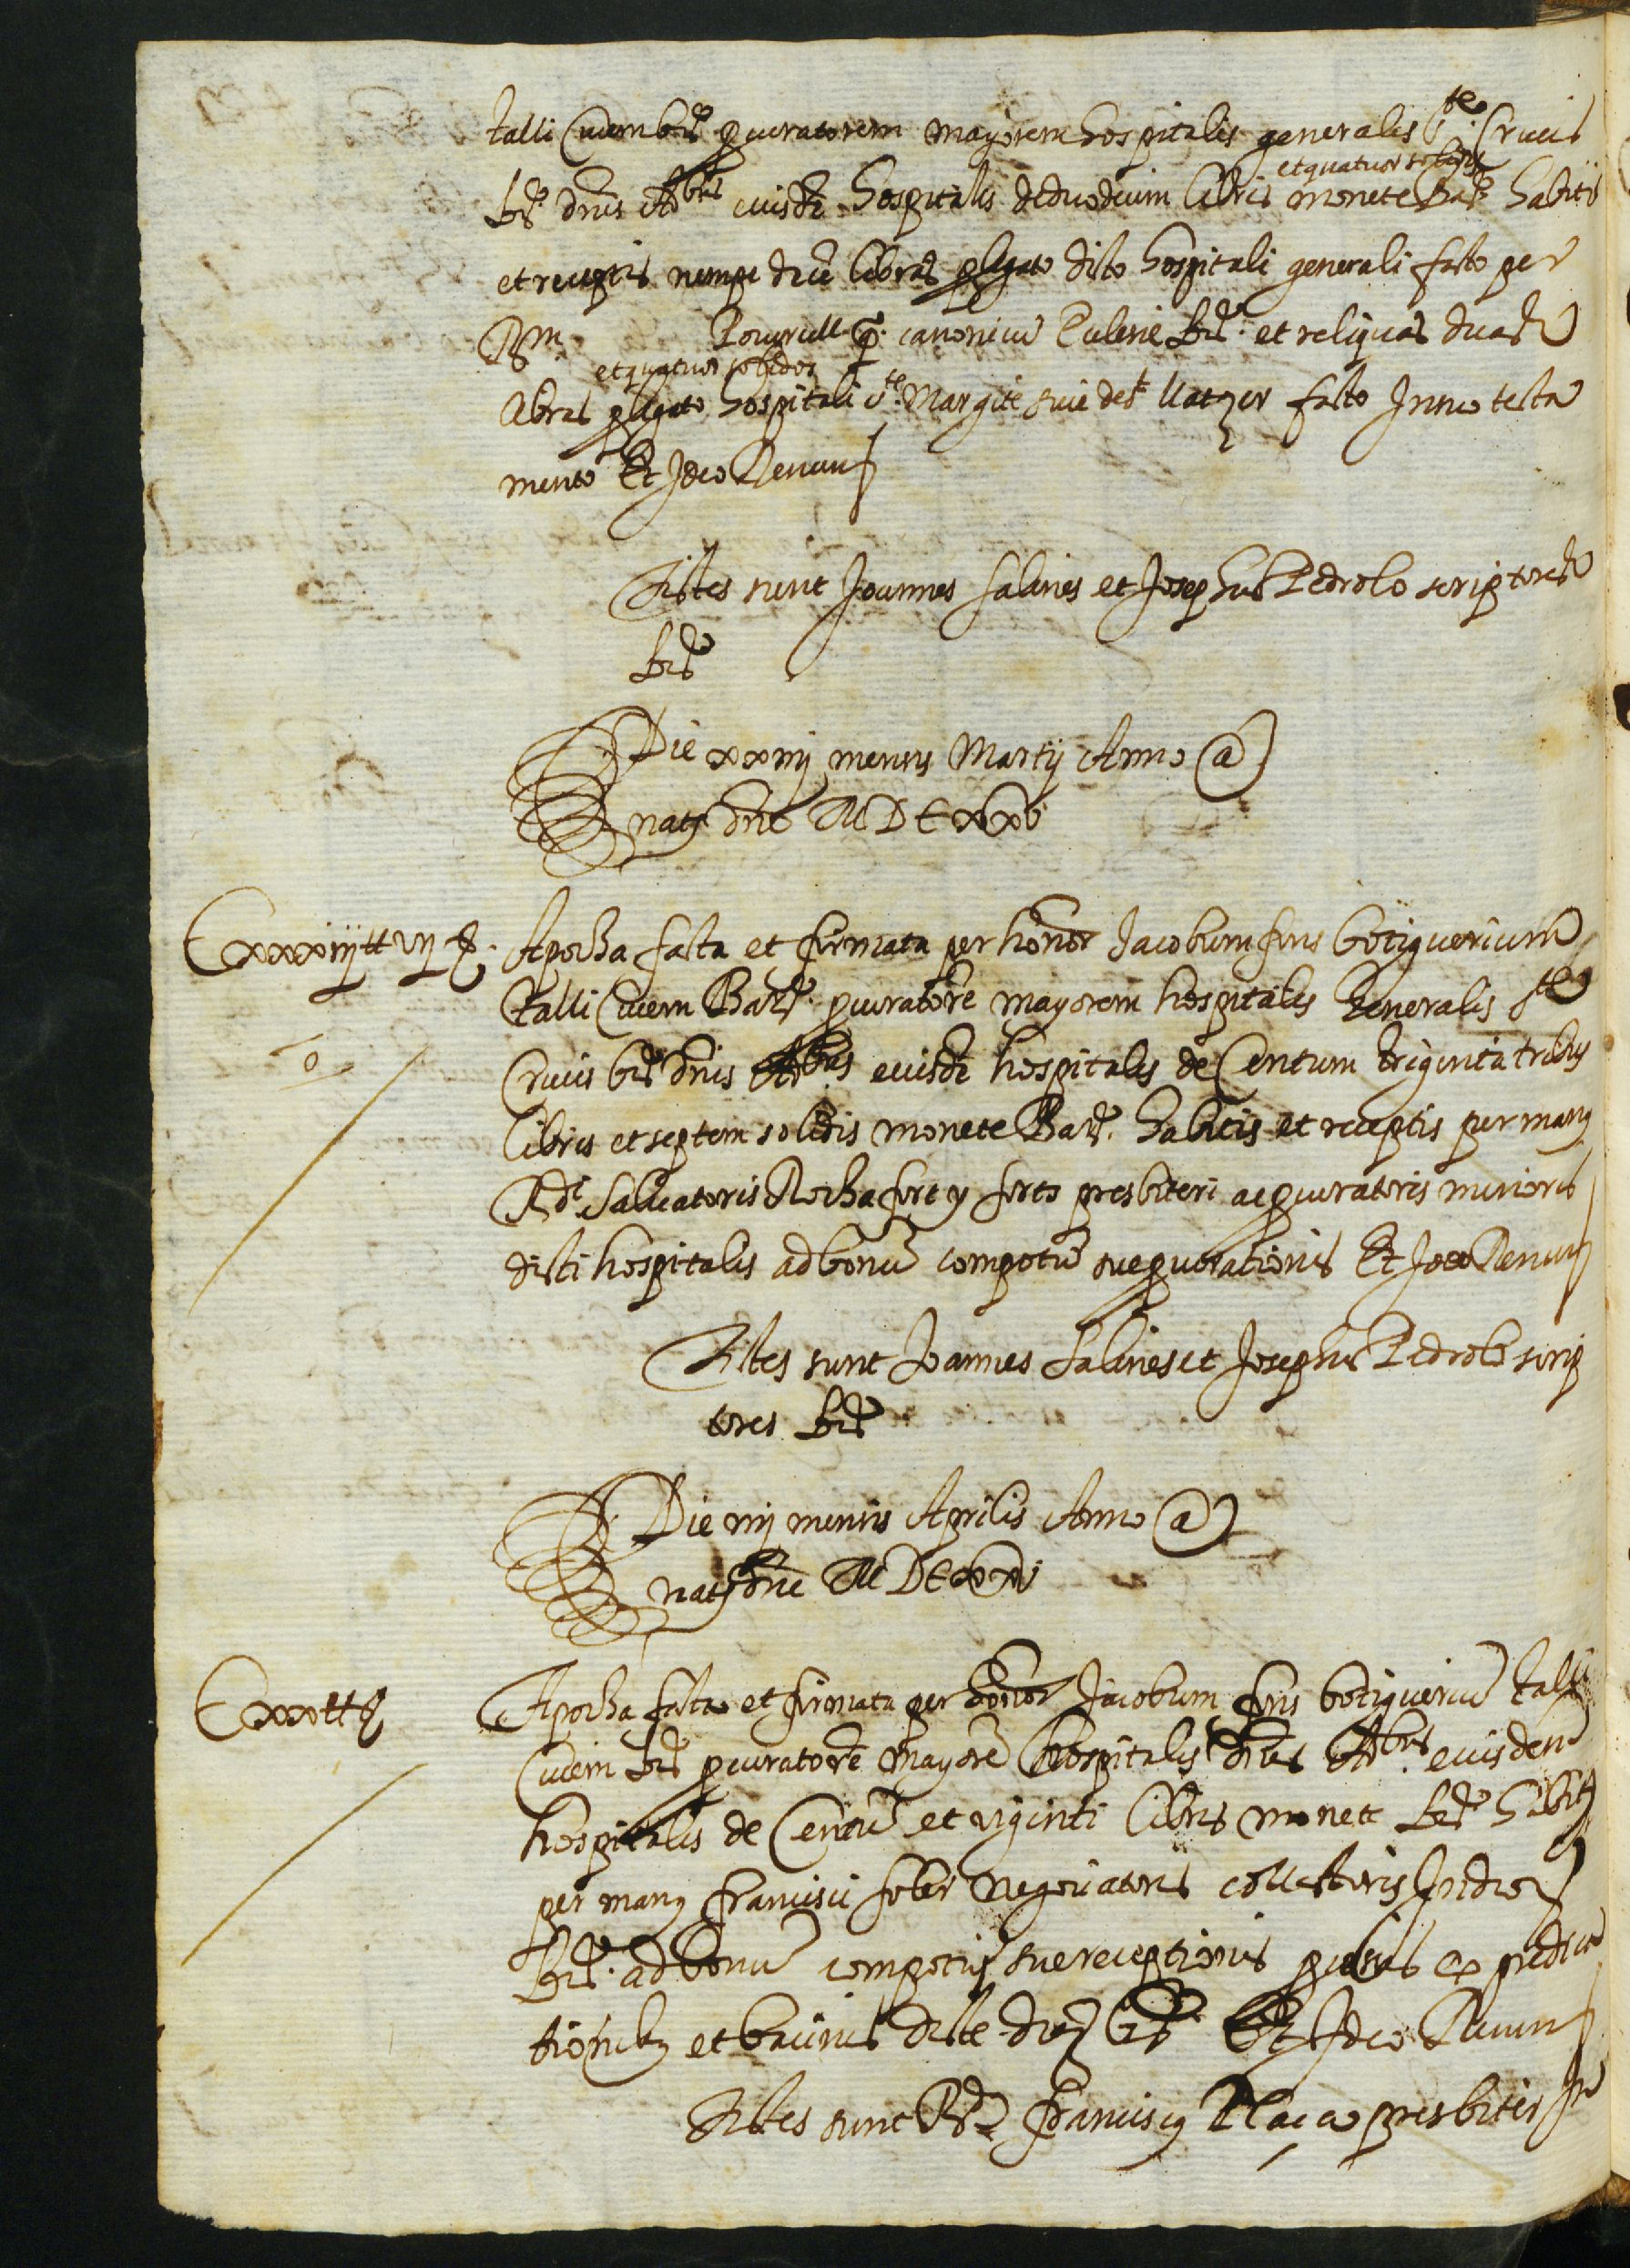 talli Civem bñe procuratorem mayorem hospitalis generalis Ste. Crucis
et quatuor solidis
bñe dnis Adbus eiusde hospitalis de duodecim libris monete Bare habitis
et receptis nempe dece libras pro llegato dicto hospitali generali facto per
Rm. Ponçrull q. canonicu Eulerie bñe et reliquas duas
et quatuor solidos
libras pro llegato hospitali Ste. Margite sive de St llatzer facto In suo testa
mento Et Ideo Renun
Testes sunt Joannes Salines et Josephus Pedrolo scriptores
bñe
Die xxiiij mensis Martij Anno @
natt dni M D C xxi
Cxxxiij tt vij s. Apocha facta et firmata per honor Jacobum fons botiguerium
talli Civem Bare procuratore mayorem hospitalis Generalis Ste
Crucis bñe dnis Adbus eiusde hospitalis de Centum triginta tribus
libris et septem solidis monete Bare. habitis et receptis per manus
Rdi Salvatoris Rochafort y forts presbiteri ac procuratoris minoris
dicti hospitalis ad bonu compotu sue procurationis Et Ideo Renun
o
Testes sunt Joannes Salines et Josephus Pedrolo scrip
tores bñe
Die iiij mensis Aprilis Anno @
natt dni M D C xxi
Cxx tt s Apocha facta et firmata per honor Jacobum fons botigueriu talli
Civem bñe procuratore mayore hospitalis dnis Adbus. eiusdem
hospitalis de Centu et viginti libris monete bñe habitis
per manus francisci soler negociatoris collectoris
bñe. ad bonu compotu sue receptionis
et bacinis dicte bñe Et Ideo Renun
Testes sunt Rdus franciscus Plaça presbiter